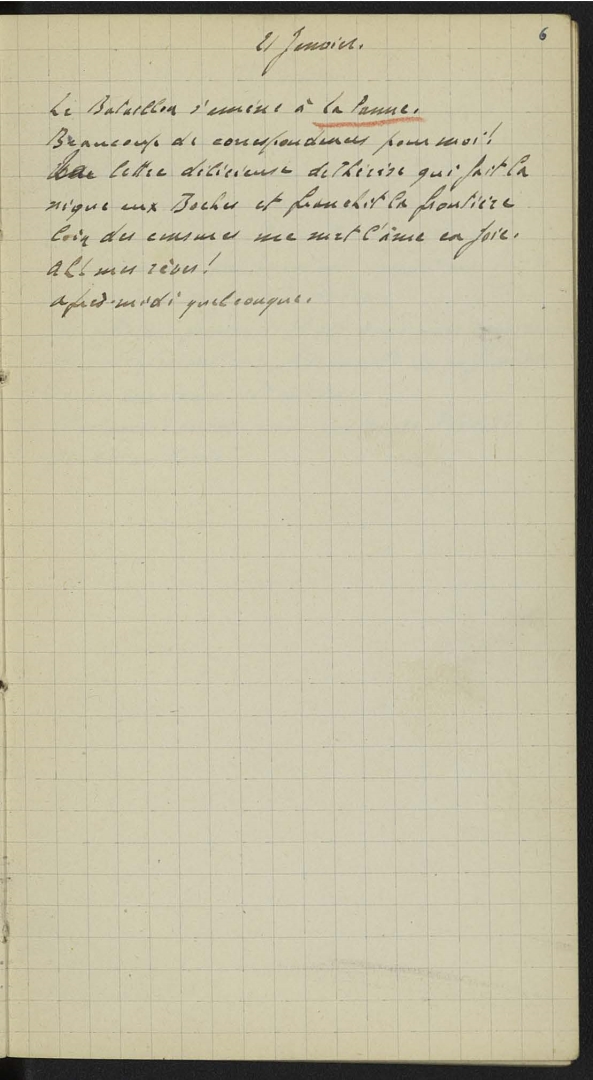 6
21 Janvier.
Le Bataillon s'amène à La Panne.
Beaucoup de correspondances pour moi!
Une lettre délicieuse de Thérèse qui fait la
nique aux Boches et franchit la frontière
loin des censures me met l'âme en joie.
Ah! mes rêves!
après-midi quelconque.